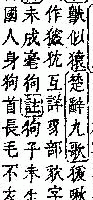 似猿楚辭九歌猨啾
作狖互詳豸部字
未成毫狗註狗子未生
國人身狗首長毛不衣